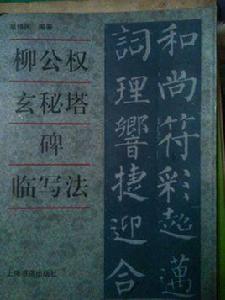 柳公权
玄秘塔
碑
临写法
上海书店出版社
和尚符彩超邁
詞理響捷迎合